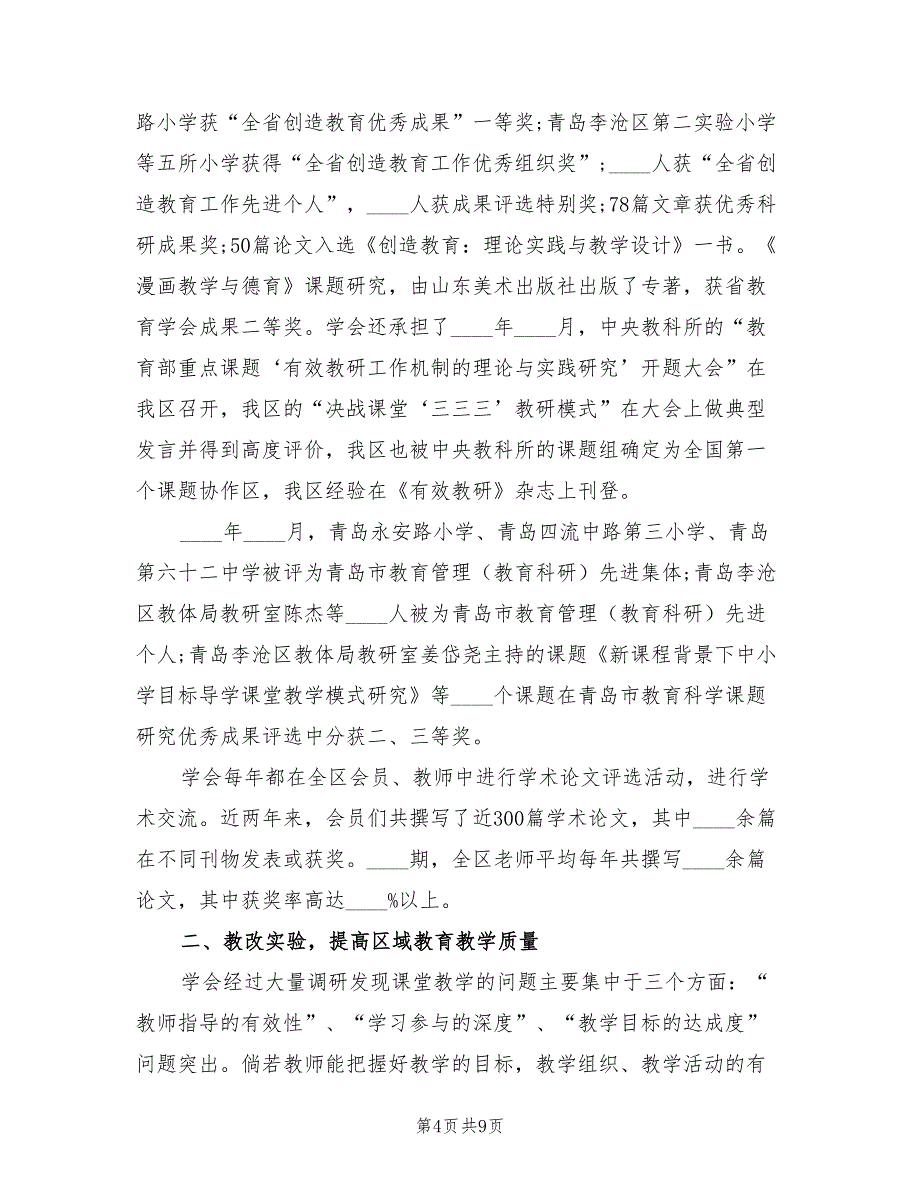 路小学获“全省创造教育优秀成果”一等奖;青岛李沧区第二实验小学
等五所小学获得“全省创造教育工作优秀组织奖”;____人获“全省创
造教育工作先进个人”，____人获成果评选特别奖;78篇文章获优秀科
研成果奖;50篇论文入选《创造教育：理论实践与教学设计》一书。《
漫画教学与德育》课题研究，由山东美术出版社出版了专著，获省教
育学会成果二等奖。学会还承担了____年____月，中央教科所的“教
育部重点课题‘有效教研工作机制的理论与实践研究’开题大会”在
我区召开，我区的“决战课堂‘三三三’教研模式”在大会上做典型
发言并得到高度评价，我区也被中央教科所的课题组确定为全国第一
个课题协作区，我区经验在《有效教研》杂志上刊登。
____年____月，青岛永安路小学、青岛四流中路第三小学、青岛
第六十二中学被评为青岛市教育管理（教育科研）先进集体;青岛李沧
区教体局教研室陈杰等____人被为青岛市教育管理（教育科研）先进
个人;青岛李沧区教体局教研室姜岱尧主持的课题《新课程背景下中小
学目标导学课堂教学模式研究》等____个课题在青岛市教育科学课题
研究优秀成果评选中分获二、三等奖。
学会每年都在全区会员、教师中进行学术论文评选活动，进行学
术交流。近两年来，会员们共撰写了近300篇学术论文，其中____余篇
在不同刊物发表或获奖。____期，全区老师平均每年共撰写____余篇
论文，其中获奖率高达____%以上。
二、教改实验，提高区域教育教学质量
学会经过大量调研发现课堂教学的问题主要集中于三个方面：“
教师指导的有效性”、“学习参与的深度”、“教学目标的达成度”
问题突出。倘若教师能把握好教学的目标，教学组织、教学活动的有
第4页共9页